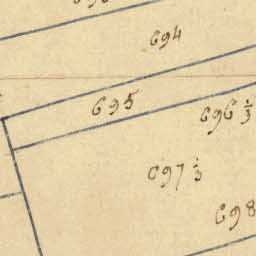 694
695
696 ⅓
697 ⅓
698